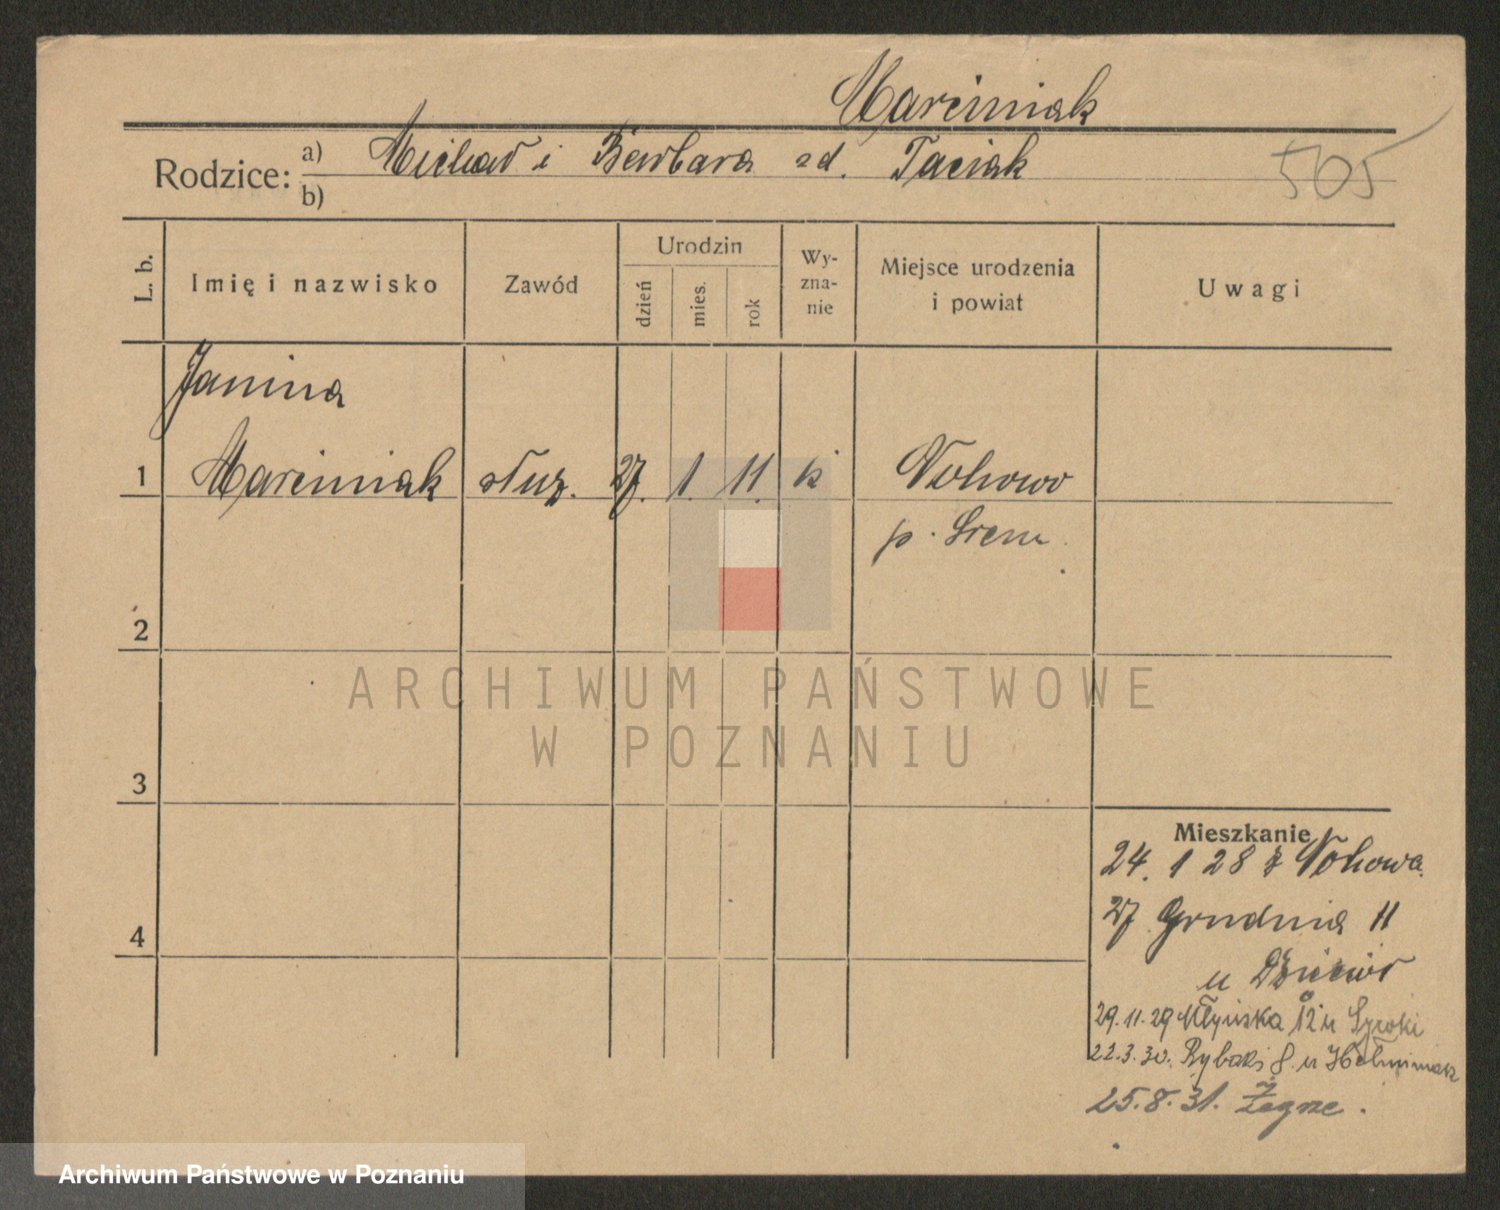 Marciniak
Rodzice: a) Michał i Barbara zd. Taciak
b)
505
L. b. Imię i nazwisko Zawód Urodzin dzień mies. rok Wy-zna-nie Miejsce urodzenia i powiat Uwagi
Janina
1 Marciniak służ. 27. 1. 11. k
p. Srem
2
ARCHIWUM PAŃSTWOWE
W POZNANIU
3
Mieszkanie
24. 1 28 z
27 Grudnia 11
u
29.11.29 Młyńska 12 u
22.3.30. Rybaki 8 u
25.8.31. Żegrze.
4
Archiwum Państwowe w Poznaniu